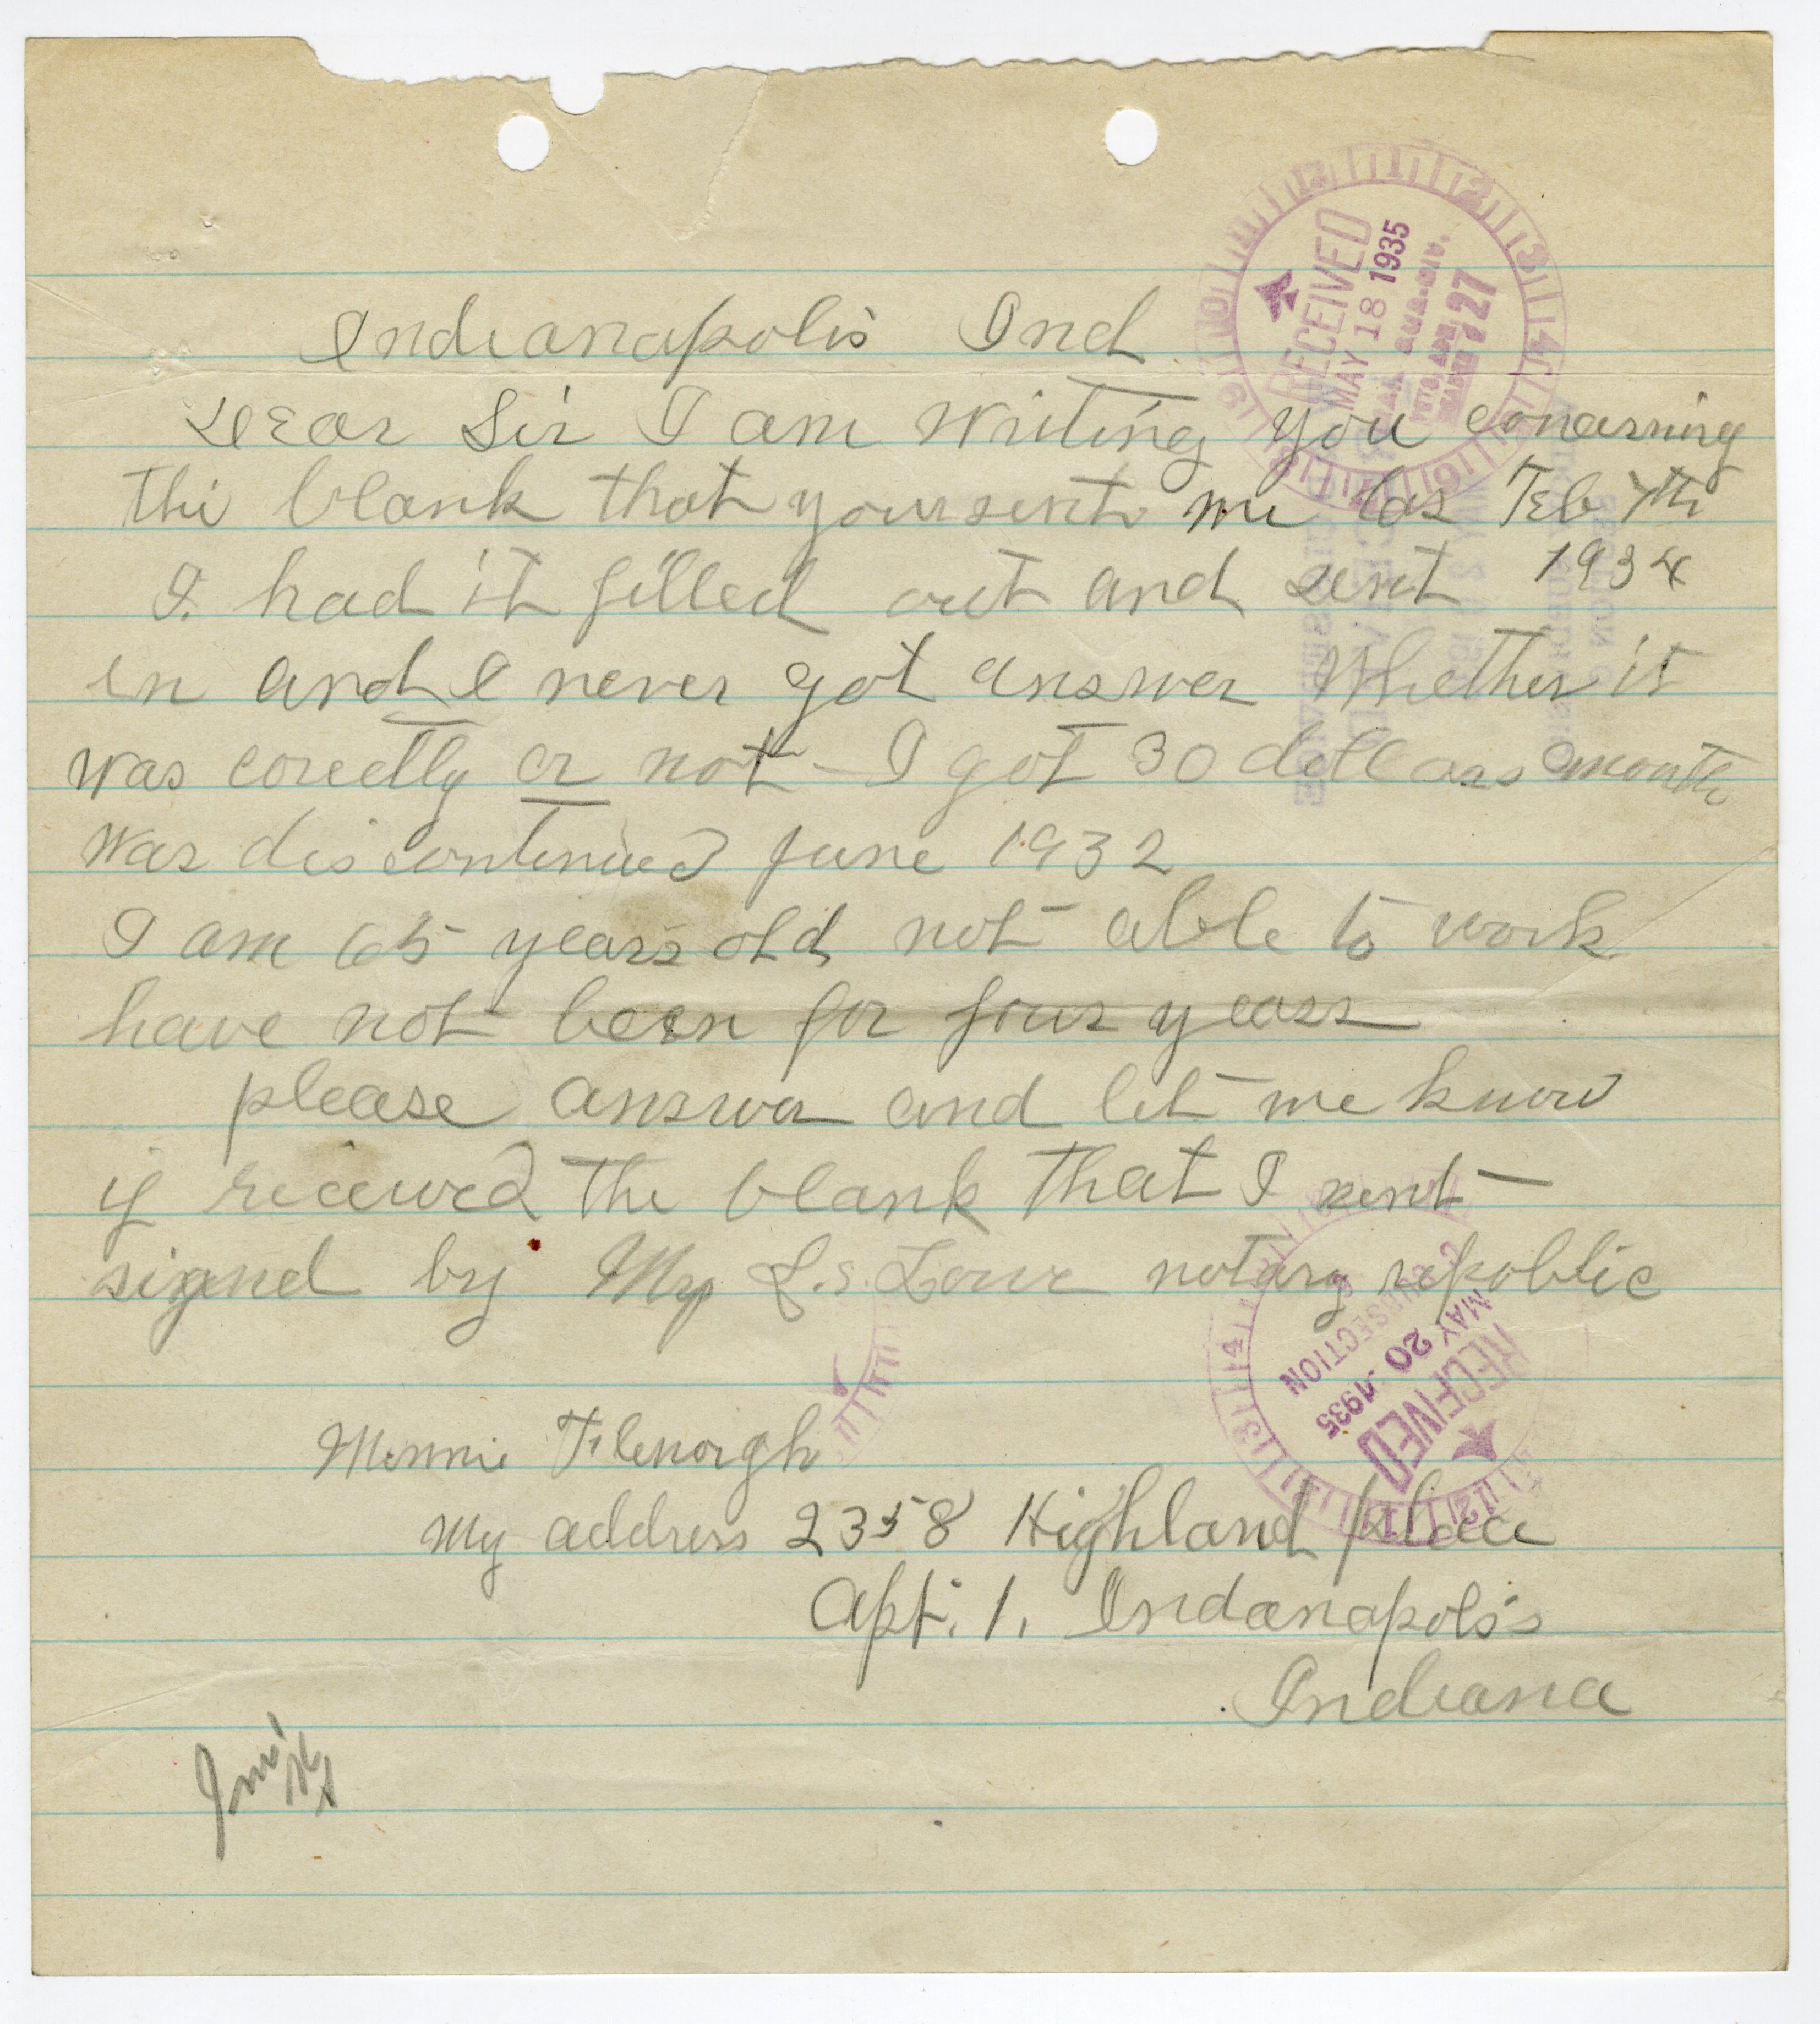 Indianapolis Ind
Dear Sir I am writing you conasrning
the blank that your sent me las Feb 7th
1934
I had it filled out and sent
in and I never got answer Whether it
was corectly or not - I got 30 dollars a month
was discontinued June 1932
I am 65 years old not able to work
have not been for four years
please answer and let me know
if recieved the blank that I sent
signed by My L.S. Lowe notary repoblic
Minnie
My address 2358 Highland place
Apt. 1. Indanapolis
Indiana
RECEIVED
MAY 18 1935
27
RECEIVED
MAY 20 1935
SUBSECTION